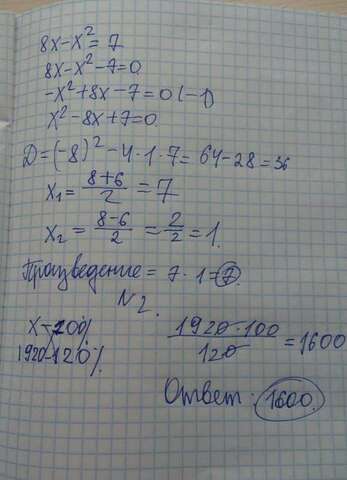 8x-x²=7
8x-x²-7=0
-x²+8x-7=0 (-1)
x²-8x+7=0
D=(-8)²-4·1·7=64-28=36
x₁=8+6/2=7
x₂=8-6/2=2/2=1.
Произведение=7·1=7
N2.
x-100%
1920-120%
1920·100/120=1600
Ответ: 1600.